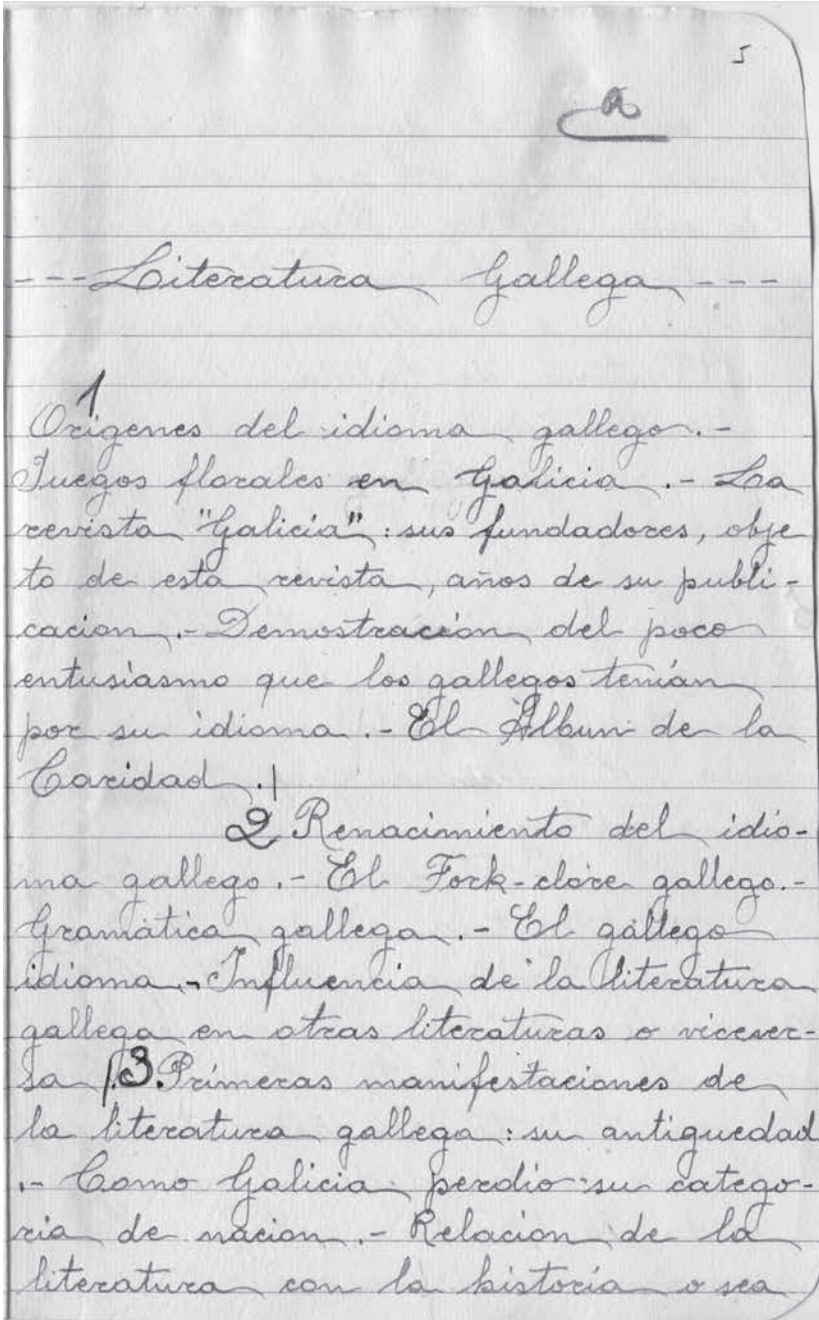 5
a
---Literatura Gallega---
1
Origenes del idioma gallego.-
Juegos florales en Galicia.- La
revista "Galicia": sus fundadores, obje
to de esta revista, años de su publi-
cacion.- Demostración del poco
entusiasmo que los gallegos tenían
por su idioma.- El Álbun de la
Caridad.|
2 Renacimiento del idio-
ma gallego.- El Fork-clore gallego.-
Gramática gallega.- El gallego
idioma.- Influencia de la literatura
gallega en otras literaturas o vicever-
sa |.3. Primeras manifestaciones de
la literatura gallega: su antiguedad
.- Como Galicia perdio su catego-
ria de nacion.- Relacion de la
literatura con la historia o sea